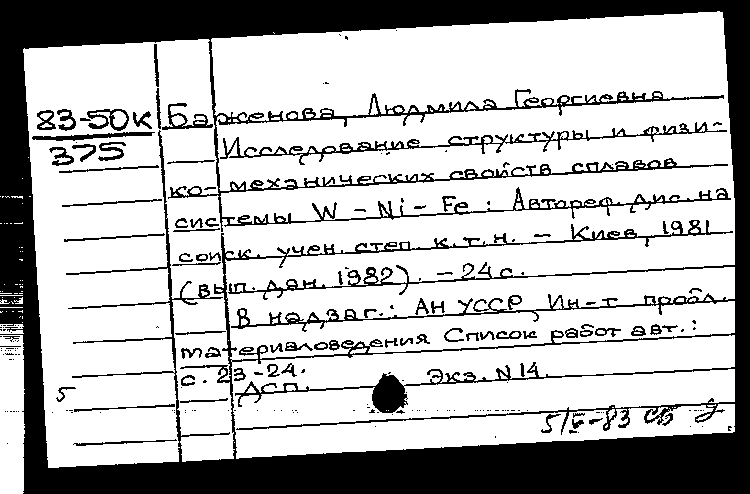 83-50К Баженова, Людмила Георгиевна
375
Исследование структуры и физи-
ко-механических свойств сплавов
системы W - Ni - Fe : Автореф. дис. на
соиск. учен. степ. к.т.н. - Киев, 1981
(вып. дан. 1982). - 24 с.
В надзаг.: АН УССР, Ин-т пробл.
материаловедения Список работ авт.:
с. 23-24.
5 ДСП. Экз. N 14.
83 СБ